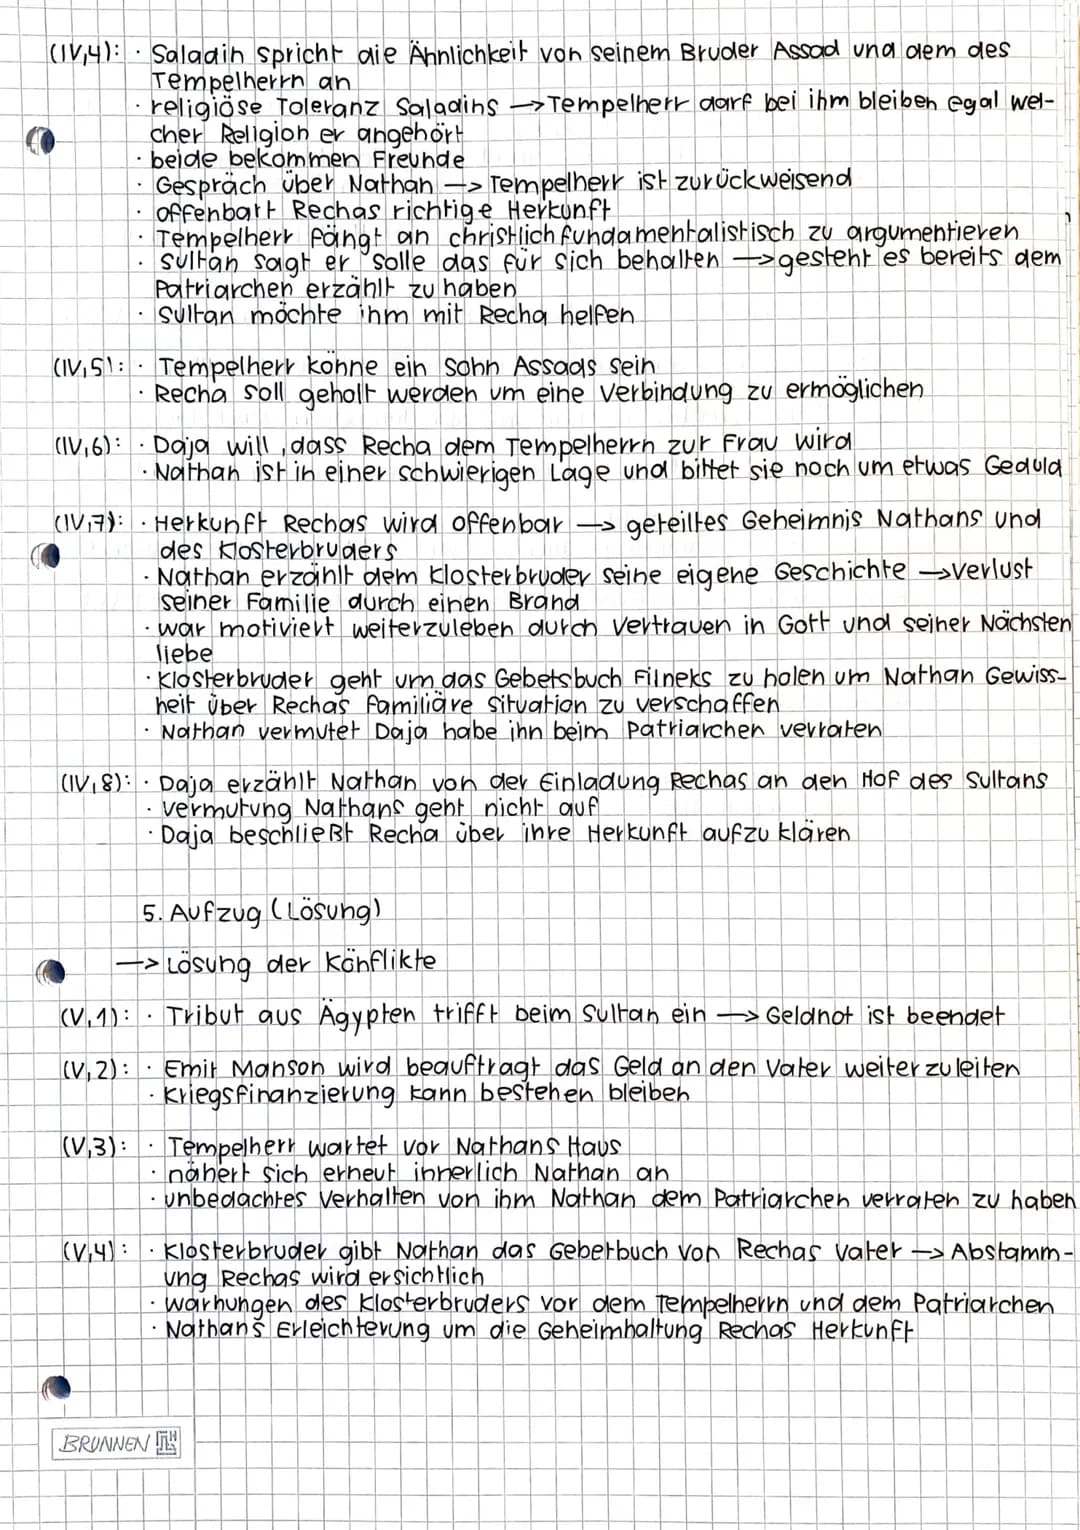 (IV,4): · Saladin spricht die Ähnlichkeit von seinem Bruder Assad und dem des
Tempelherrn an
· religiöse Toleranz Saladins → Tempelherr darf bei ihm bleiben egal wel-
cher Religion er angehört
· beide bekommen Freunde
· Gespräch über Nathan → Tempelherr ist zurückweisend
· offenbart Rechas richtige Herkunft
· Tempelherr fängt an christlich fundamentalistisch zu argumentieren
· Sultan sagt er solle das für sich behalten → gesteht es bereits dem
Patriarchen erzählt zu haben
· Sultan möchte ihm mit Recha helfen
(IV,5): · Tempelherr könne ein Sohn Assads sein
· Recha soll geholt werden um eine Verbindung zu ermöglichen
(IV,6): · Daja will, dass Recha dem Tempelherrn zur Frau wird
· Nathan ist in einer schwierigen Lage und bittet sie noch um etwas Geduld
(IV,7): · Herkunft Rechas wird offenbar → geteiltes Geheimnis Nathans und
des Klosterbruders
· Nathan erzählt dem Klosterbruder seine eigene Geschichte → Verlust
seiner Familie durch einen Brand
· war motiviert weiterzuleben durch Vertrauen in Gott und seiner Nächsten
liebe
· Klosterbruder geht um das Gebetsbuch Filneks zu holen um Nathan Gewiss-
heit über Rechas familiäre Situation zu verschaffen
· Nathan vermutet Daja habe ihn beim Patriarchen verraten
(IV,8): · Daja erzählt Nathan von der Einladung Rechas an den Hof des Sultans
· Vermutung Nathans geht nicht auf
· Daja beschließt Recha über ihre Herkunft aufzuklären
5. Aufzug (Lösung)
→ Lösung der Konflikte
(V,1): · Tribut aus Ägypten trifft beim Sultan ein → Geldnot ist beendet
(V,2): · Emir Manson wird beauftragt das Geld an den Vater weiterzuleiten
· Kriegsfinanzierung kann bestehen bleiben
(V,3): · Tempelherr wartet vor Nathans Haus
· nähert sich erneut innerlich Nathan an
· unbedachtes Verhalten von ihm Nathan dem Patriarchen verraten zu haben
(V,4): · Klosterbruder gibt Nathan das Gebetbuch von Rechas Vater → Abstamm-
ung Rechas wird ersichtlich
· Warnungen des Klosterbruders vor dem Tempelherrn und dem Patriarchen
· Nathans Erleichterung um die Geheimhaltung Rechas Herkunft
BRUNNEN